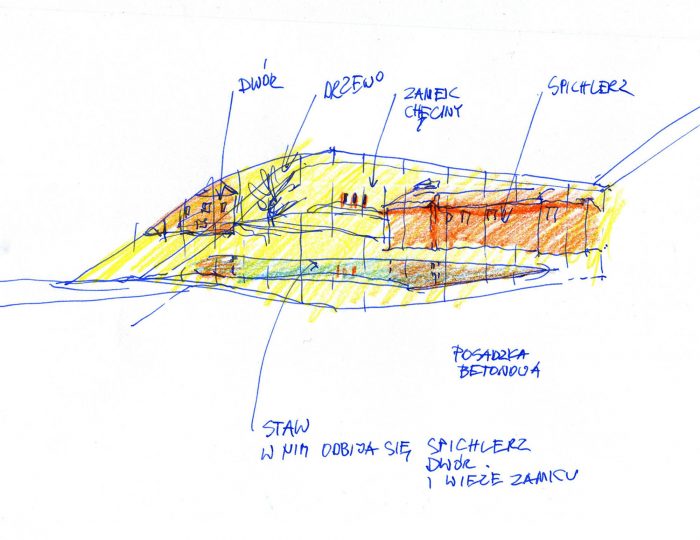 DWÓR
DRZEWO
ZAMEK
CHĘCINY
SPICHLERZ
POSADZKA
BETONOWA
STAW
W NIM ODBIJA SIĘ SPICHLERZ
DWÓR.
I WIEŻE ZAMKU